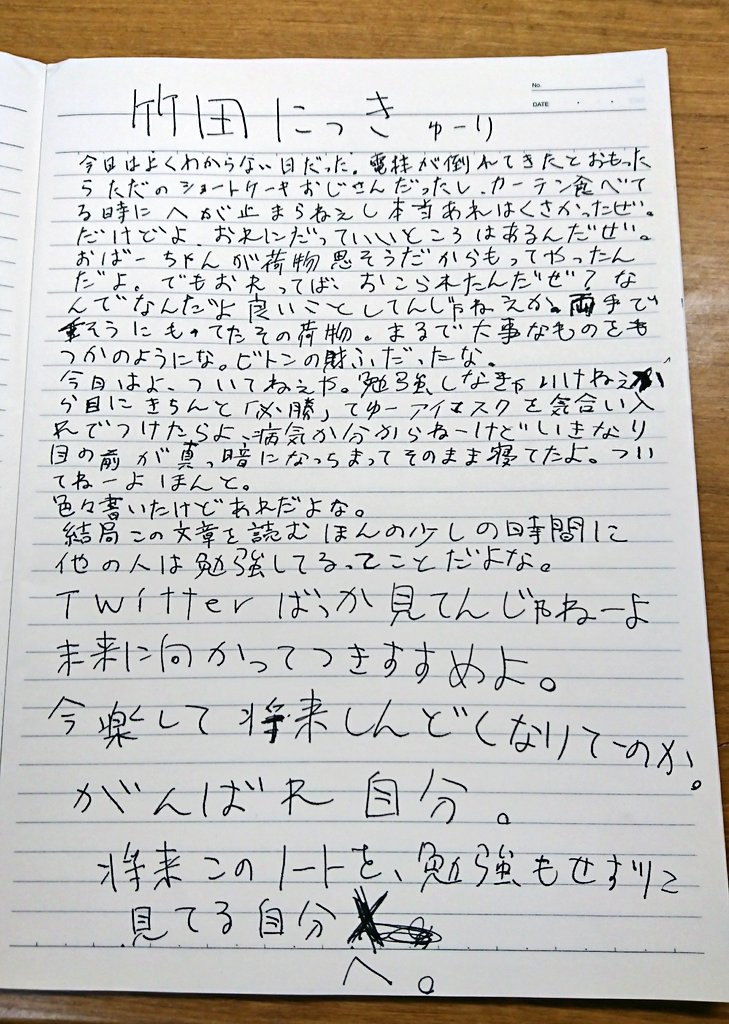 No.
DATE
竹田にっき ゅーり
今日はよくわからない日だった。電柱が倒れてきたとおもった
らただのショートケーキおじさんだったし、カーテン食べて
る時にへが止まらねえし本当あれはくさかったぜ。
だけどよ、おれにだっていいところはあるんだぜ。
おばーちゃんが荷物思そうだからもってやったん
だよ。でもおれってば、おこられたんだぜ?な
んでなんだよ良いことしてんじゃねえか。両手で
重そうにもってたその荷物。まるで大事なものをも
つかのようにな。ビトンの財ふだったな。
今日はよ、ついてねえや。勉強しなきゃいけねえか
ら目にきちんと「必勝」てゆーアイマスクを気合い入
れでつけたらよ、病気か分からねーけどいきなり
目の前が真っ暗になっちまってそのまま寝てたよ。つい
てねーよほんと。
色々書いたけどあれだよな。
結局この文章を読むほんの少しの時間に
他の人は勉強してるってことだよな。
Twitterばっか見てんじゃねーよ
未来に向かってつきすすめよ。
今楽して将来しんどくなりてーのか。
がんばれ自分。
将来このノートを、勉強もせずに
見てる自分
へ。